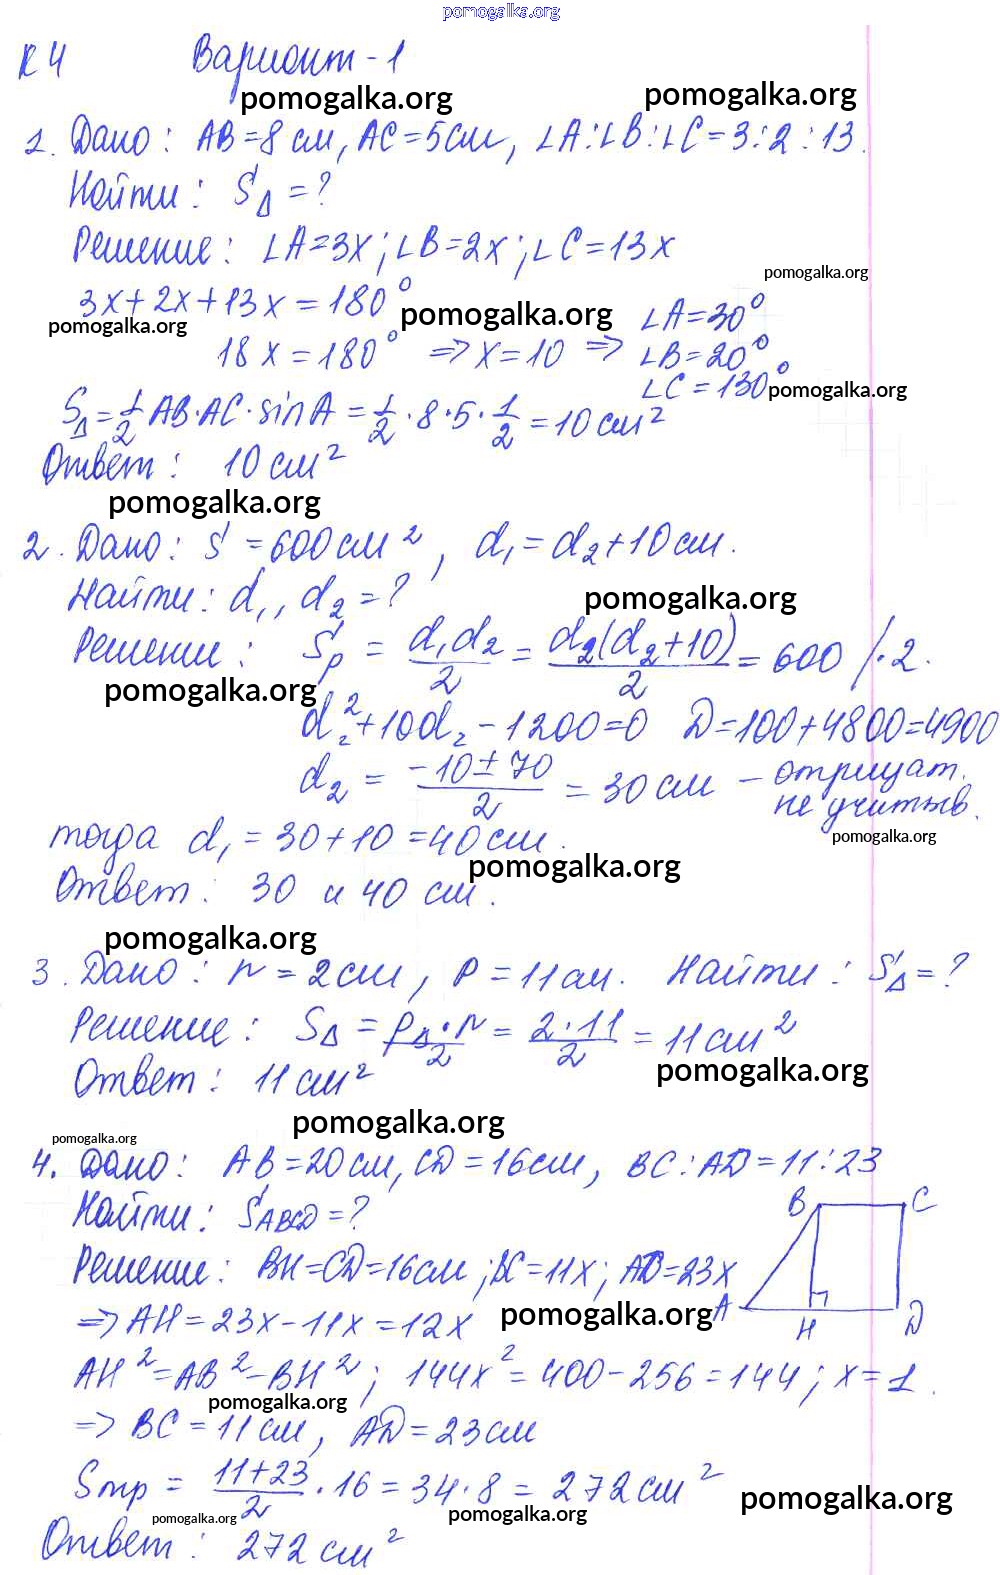 pomogalka.org
К4 Вариант-1
pomogalka.org pomogalka.org
1. Дано: AB=8см, AC=5см, ∠A:∠B:∠C=3:2:13.
Найти: S△=?
Решение: ∠A=3x; ∠B=2x; ∠C=13x
pomogalka.org
3x+2x+13x=180° ∠A=30°
pomogalka.org pomogalka.org
18x=180° ⇒x=10 ⇒ ∠B=20°
∠C=130° pomogalka.org
S△=1/2 AB·AC·sinA=1/2·8·5·1/2=10см²
Ответ: 10см²
pomogalka.org
2. Дано: S=600см², d₁=d₂+10см.
Найти: d₁, d₂=?
pomogalka.org
Решение: Sр = d₁d₂/2 = d₂(d₂+10)/2 = 600 /·2.
pomogalka.org
d₂²+10d₂-1200=0 D=100+4800=4900
d₂ = -10±70/2 = 30см – отрицат.
не учитыв.
тогда d₁=30+10=40см.
pomogalka.org
pomogalka.org
Ответ: 30 и 40 см.
pomogalka.org
3. Дано: r=2см, P=11см. Найти: S△=?
Решение: S△=P△·r/2=2·11/2=11см²
Ответ: 11см² pomogalka.org
pomogalka.org
pomogalka.org
4. Дано: AB=20см, CD=16см, BC:AD=11:23
Найти: SABCD=? B C
Решение: BH=CD=16см; BC=11x; AD=23x
⇒AH=23x-11x=12x pomogalka.org A H D
AH²=AB²-BH²; 144x²=400-256=144; x=1.
pomogalka.org
⇒BC=11см, AD=23см
Sтр = 11+23/2·16=34·8=272см²
pomogalka.org pomogalka.org pomogalka.org
Ответ: 272см²